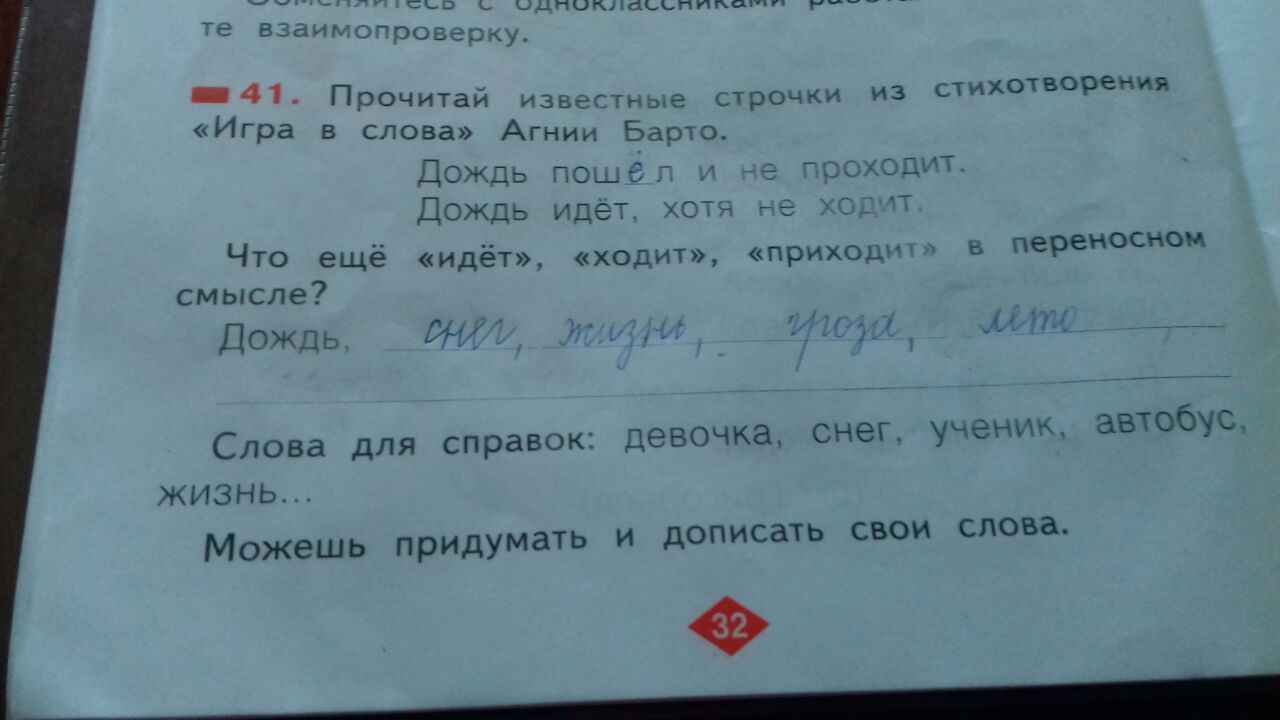 Обменяйтесь с одноклассниками
те взаимопроверку.
41. Прочитай известные строчки из стихотворения
«Игра в слова» Агнии Барто.
Дождь пошёл и не проходит.
Дождь идёт, хотя не ходит.
Что ещё «идёт», «ходит», «приходит» в переносном
смысле?
Дождь, снег, жизнь, гроза, лето ,
Слова для справок: девочка, снег, ученик, автобус,
жизнь...
Можешь придумать и дописать свои слова.
32